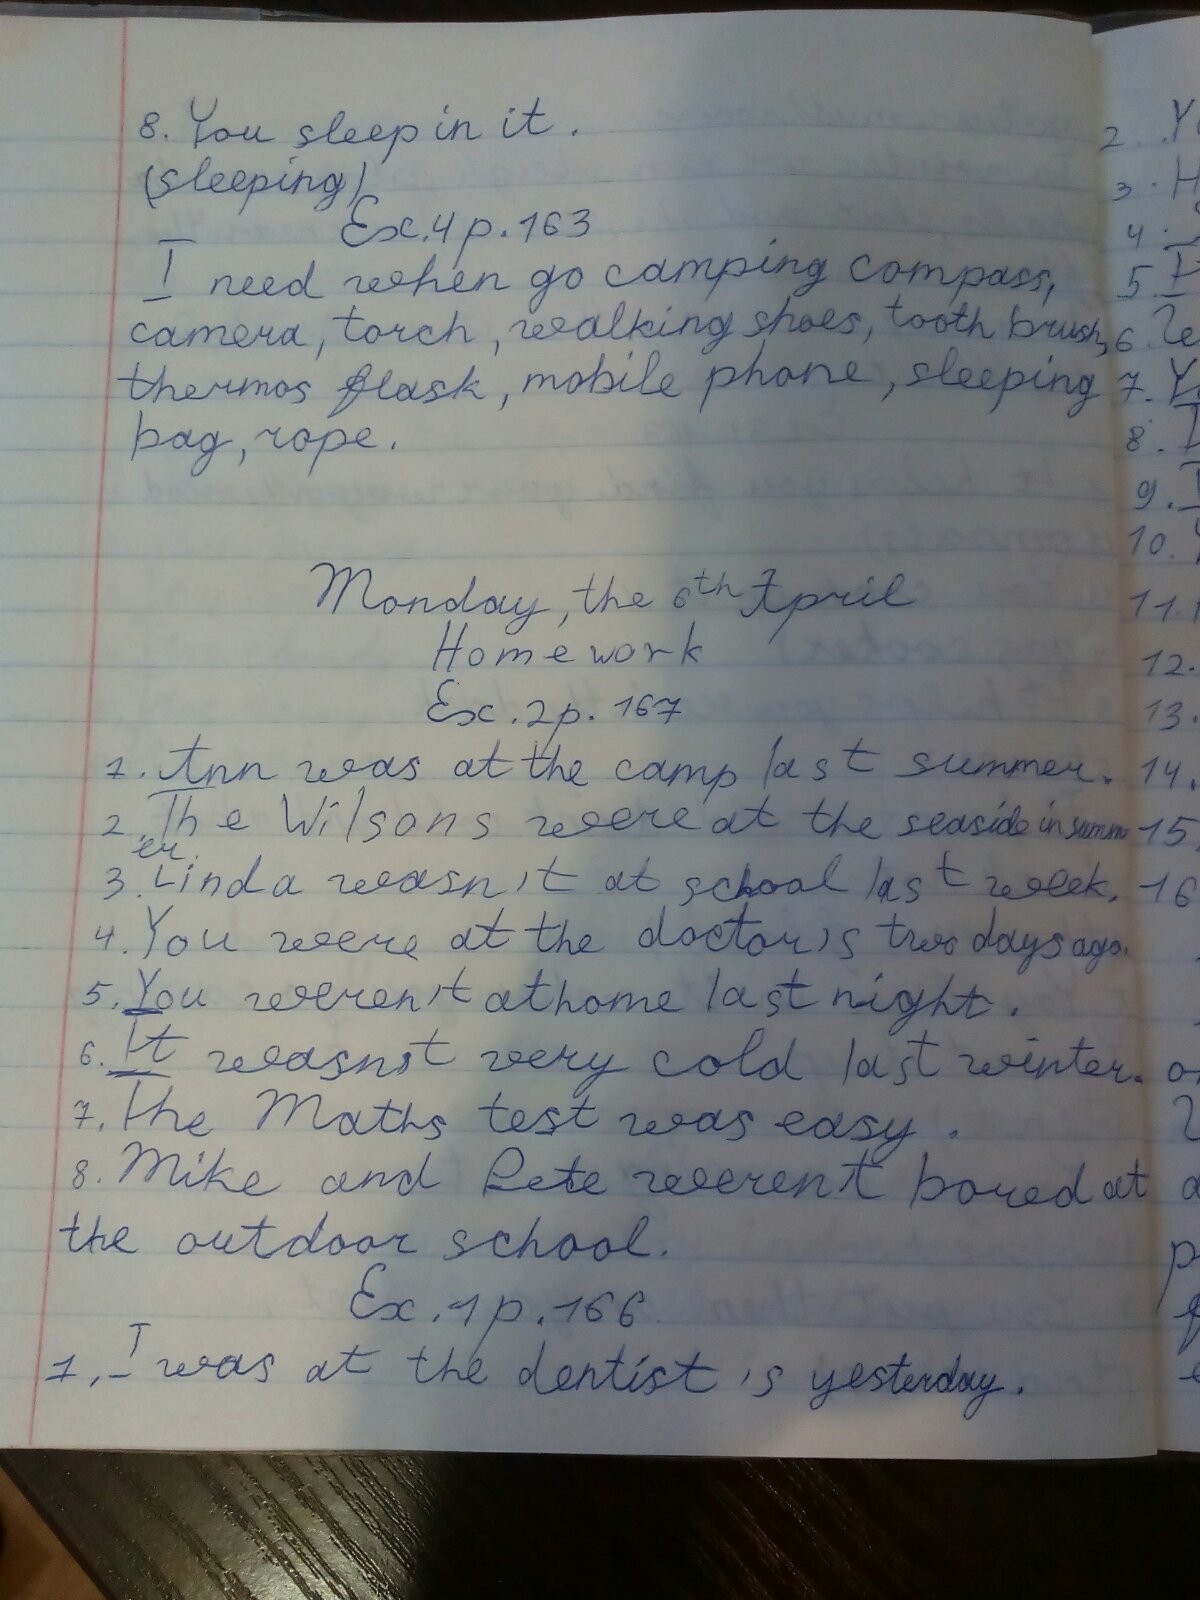 8. You sleep in it.
(sleeping)
Ex. 4 p. 163
I need when go camping compass,
camera, torch, walking shoes, tooth brush,
thermos flask, mobile phone, sleeping
bag, rope.
Monday, the 6th April
Homework
Ex. 2 p. 167
1. Ann was at the camp last summer.
2. The Wilsons were at the seaside in summ
er.
3. Linda wasn't at school last week.
4. You were at the doctor's two days ago.
5. You weren't at home last night.
6. It wasn't very cold last winter.
7. The Maths test was easy.
8. Mike and Pete weren't bored at
the outdoor school.
Ex. 1 p. 166
1. I was at the dentist's yesterday.
2.
3.
4.
5.
6.
7.
8.
9.
10.
11.
12.
13.
14.
15.
16